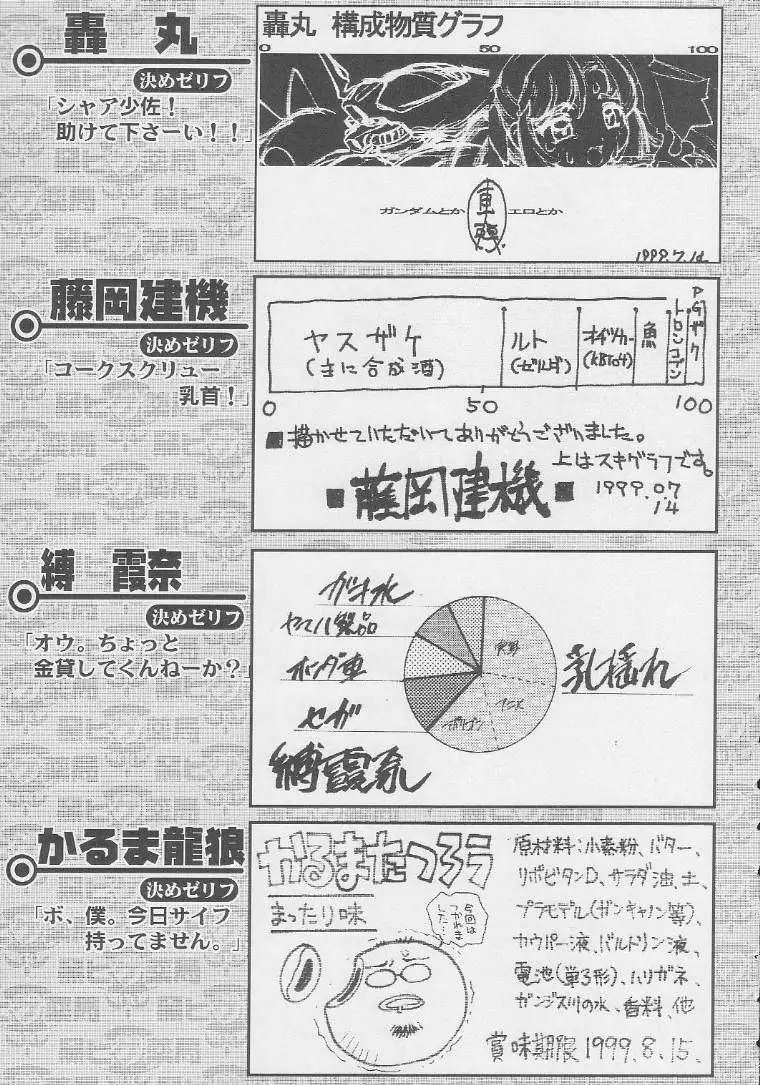 轟丸
決めゼリフ
「シャア少佐！
助けて下さーい！！」
轟丸 構成物質グラフ
0 50 100
ガンダムとか 車轟 エロとか
1999.7.14
藤岡建機
決めゼリフ
「コークスクリュー
乳首！」
ヤスザケ
(主に合成酒)
ルト
(ゼルダ)
魚
トロンコブン
PGザク
0 50 100
■描かせていただいてありがとうございました。
上はスキグラフです。
■藤岡建機■
1999.07
14
縛 霞奈
決めゼリフ
「オウ。ちょっと
金貸してくんねーか？」
ガソ水
ヤマハ製品
ホンダ車
セガ
実野
アニメ
ポリゴン
乳揺れ
縛霞奈
かるま龍狼
決めゼリフ
「ボ、僕。今日サイフ
持ってません。」
かるまたつろう
まったり味
今回は
つかれき
した…
原材料：小麦粉、バター、
リポビタンD、サラダ油、土、
プラモデル(ガンキャノン等)、
カウパー液、バルトリン液、
電池(単3形)、ハリガネ、
ガンジス川の水、香料、他
賞味期限1999.8.15.